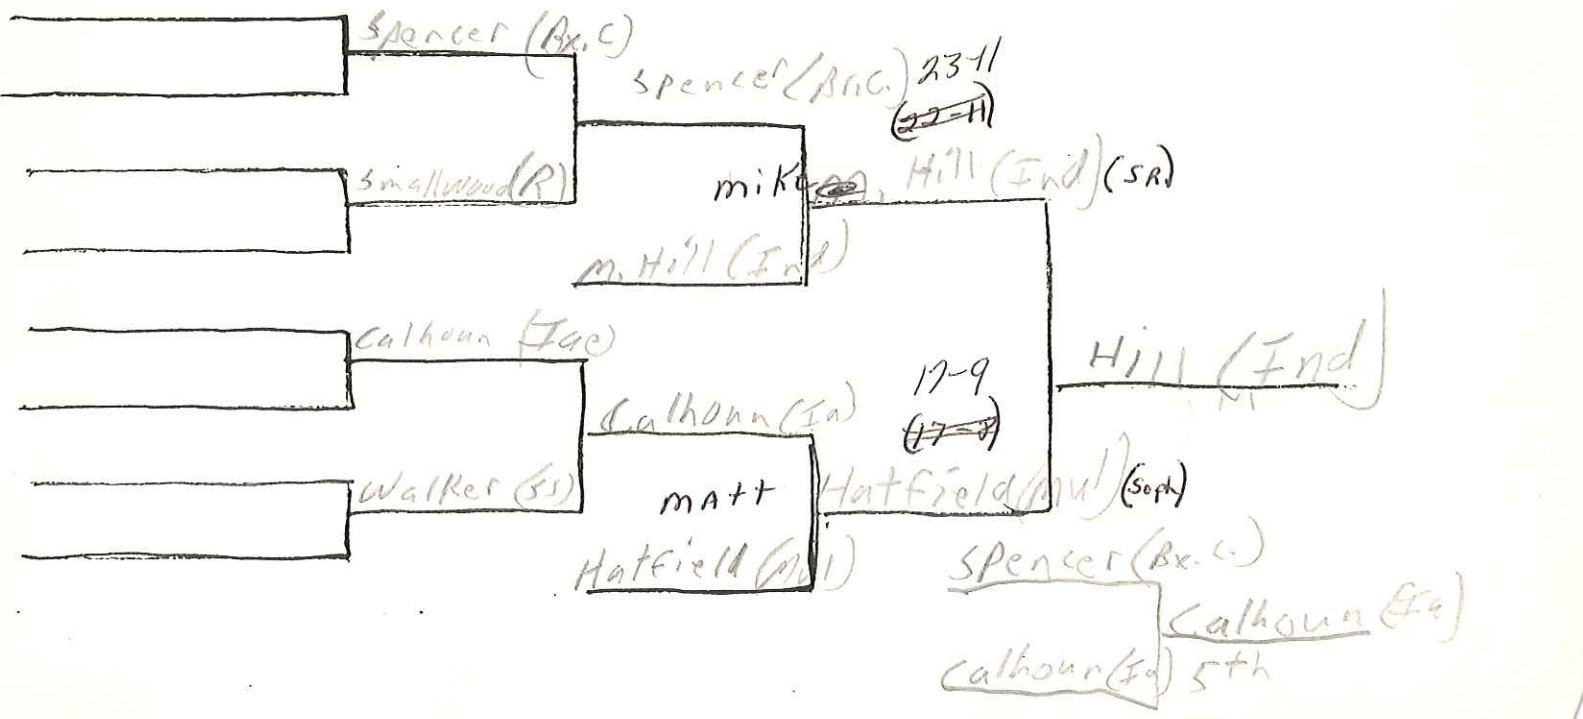 Spencer (Bx. C)
Spencer (Br.C.) 23-11
(22-11)
Smallwood (R)
mike m. Hill (Ind) (SR.)
M. Hill (Ind)
Calhoun (Iae)
Hill (Ind)
17-9
Calhoun (Ia)
(17-8)
Walker (SS)
MAtt Hatfield (Mul) (Soph)
Hatfield (Mul)
Spencer (Bx. C.)
Calhoun (Ia)
Calhoun (Ia) 5th